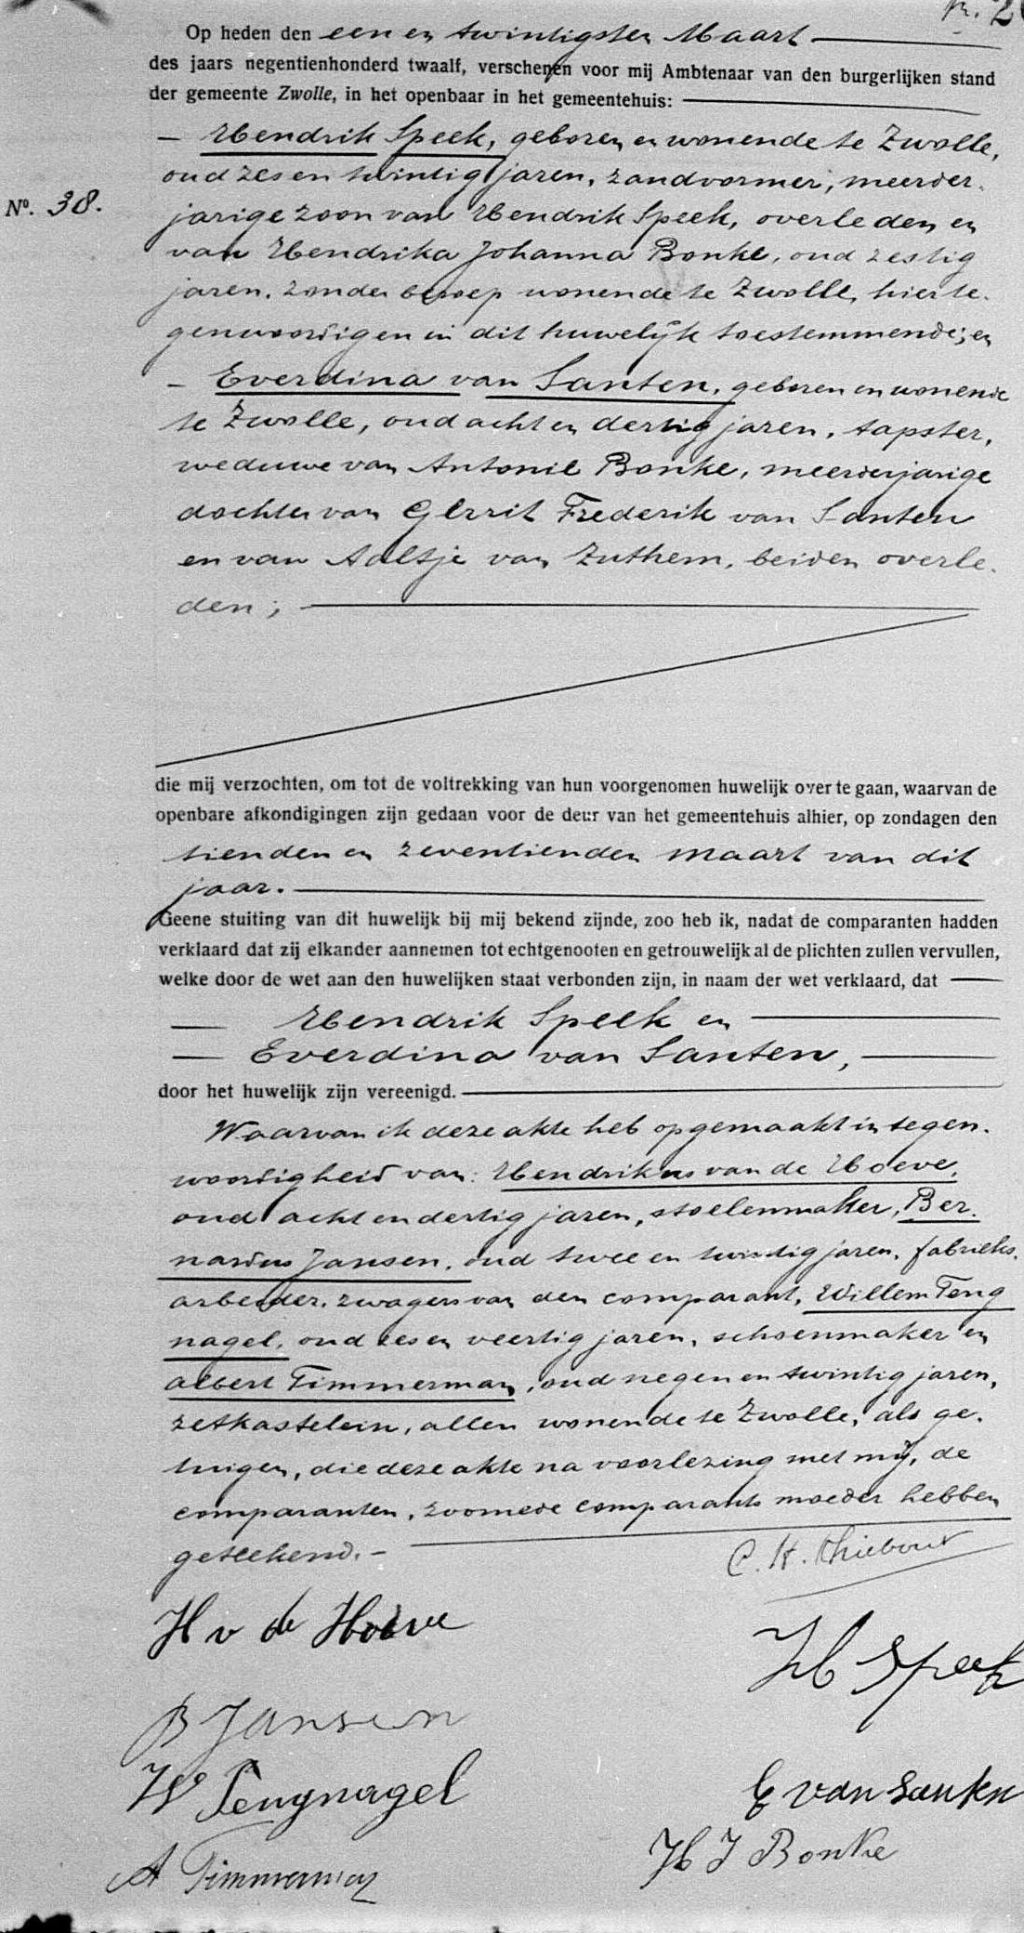 Op heden den een en twintigsten Maart
des jaars negentienhonderd twaalf, verschenen voor mij Ambtenaar van den burgerlijken stand
der gemeente Zwolle, in het openbaar in het gemeentehuis:
Nº. 38.
— Hendrik Speek, geboren en wonende te Zwolle,
oud zes en twintig jaren, zandvormer, meerder-
jarige zoon van Hendrik Speek, overleden en
van Hendrika Johanna Bonke, oud zestig
jaren, zonder beroep wonende te Zwolle, hier te-
genwoordig en in dit huwelijk toestemmende; en
— Everdina van Santen, geboren en wonende
te Zwolle, oud acht en dertig jaren, tapster,
weduwe van Antonie Bonke, meerderjarige
dochter van Gerrit Frederik van Santen
en van Aaltje van Zuthem, beiden overle-
den;
die mij verzochten, om tot de voltrekking van hun voorgenomen huwelijk over te gaan, waarvan de
openbare afkondigingen zijn gedaan voor de deur van het gemeentehuis alhier, op zondagen den
tienden en zeventienden Maart van dit
jaar.
Geene stuiting van dit huwelijk bij mij bekend zijnde, zoo heb ik, nadat de comparanten hadden
verklaard dat zij elkander aannemen tot echtgenooten en getrouwelijk al de plichten zullen vervullen,
welke door de wet aan den huwelijken staat verbonden zijn, in naam der wet verklaard, dat
— Hendrik Speek en
— Everdina van Santen,
door het huwelijk zijn vereenigd.
Waarvan ik deze akte heb opgemaakt in tegen-
woordigheid van: Hendrikus van de Hoeve,
oud acht en dertig jaren, stoelenmaker, Ber-
nardus Jansen, oud twee en twintig jaren, fabrieks-
arbeider, zwagers van den comparant, Willem Teng
nagel, oud zes en veertig jaren, schoenmaker en
Albert Timmerman, oud negen en twintig jaren,
zetkastelein, allen wonende te Zwolle, als ge-
tuigen, die deze akte na voorlezing met mij, de
comparanten, zoomede comparants moeder hebben
geteekend. —
C. H. Thiebout
H v de Hoeve
H Speek
B Jansen
W Tengnagel
E van Santen
H J Bonke
A Timmerman